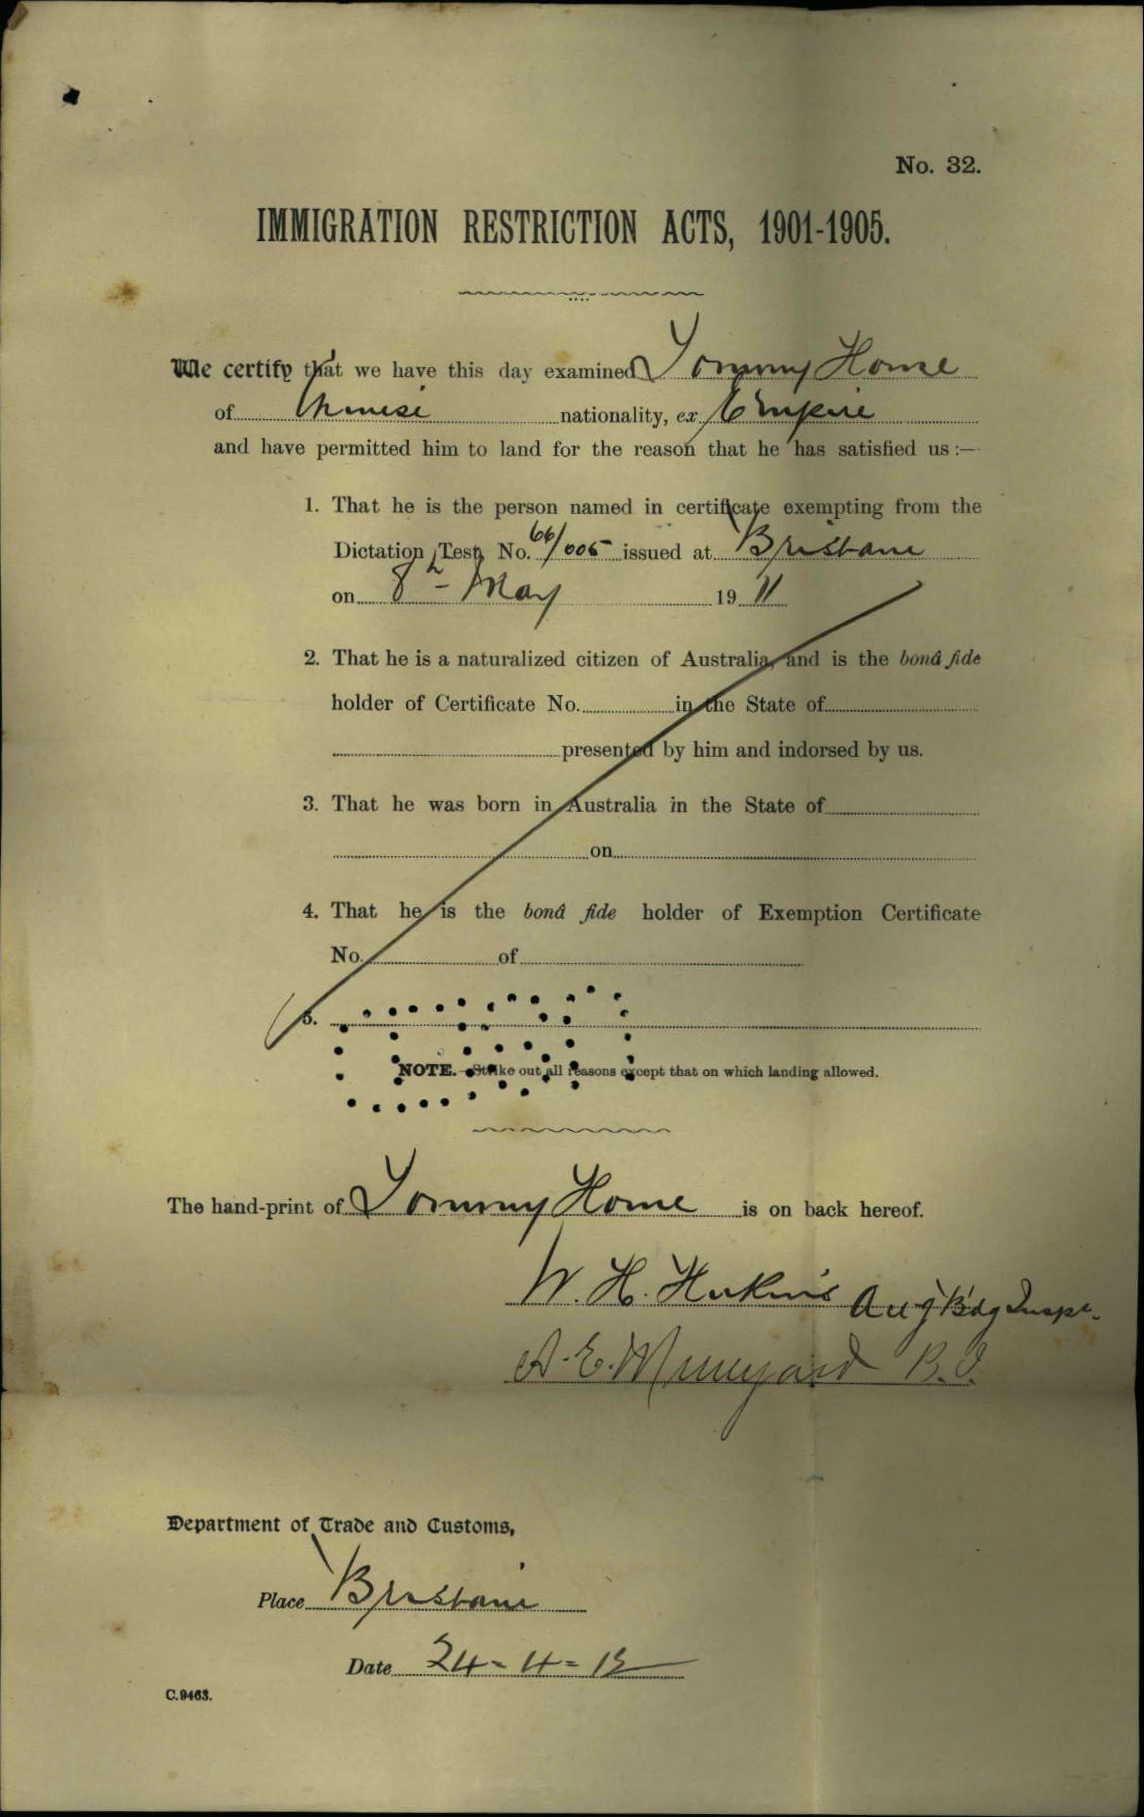 No. 32.
IMMIGRATION RESTRICTION ACTS, 1901-1905.
We certify that we have this day examined Tommy Home
of Chinese nationality, ex Empire
and have permitted him to land for the reason that he has satisfied us:—
1. That he is the person named in certificate exempting from the
Dictation Test No. 66/005 issued at Brisbane
on 8th May 1911
2. That he is a naturalized citizen of Australia, and is the bonâ fide
holder of Certificate No. in the State of
presented by him and indorsed by us.
3. That he was born in Australia in the State of
on
4. That he is the bonâ fide holder of Exemption Certificate
No. of
5.
NOTE.—Strike out all reasons except that on which landing allowed.
The hand-print of Tommy Home is on back hereof.
W. H. Actg Bdg Inspr.
A. E. B. I.
Department of Trade and Customs,
Place Brisbane
Date 24-4-
C.9463.